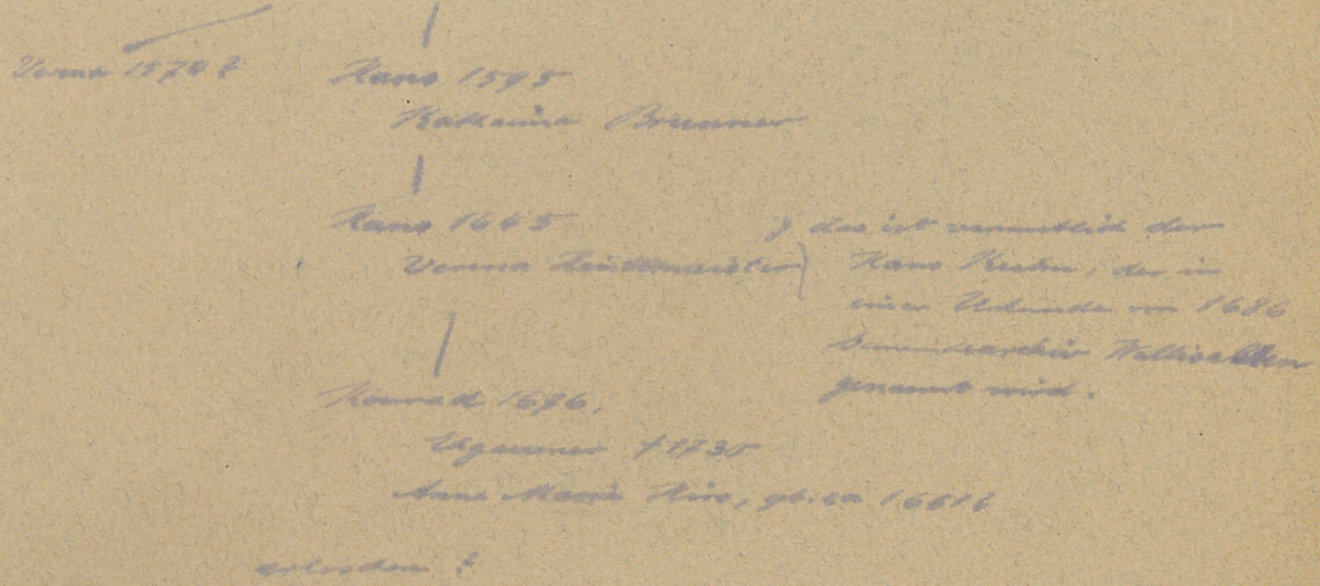 Verena 1574 ?
Hans 1595
Katharina Brunner
Hans 1645
Verena
) das ist vermutlich der
Hans Kuhn, der in
einer Urkunde von 1686
Wallisellen
genannt wird.
Konrad 1676,
† 1735
Anna Maria Hirs, gb. ca 1661 ?
erloschen ?